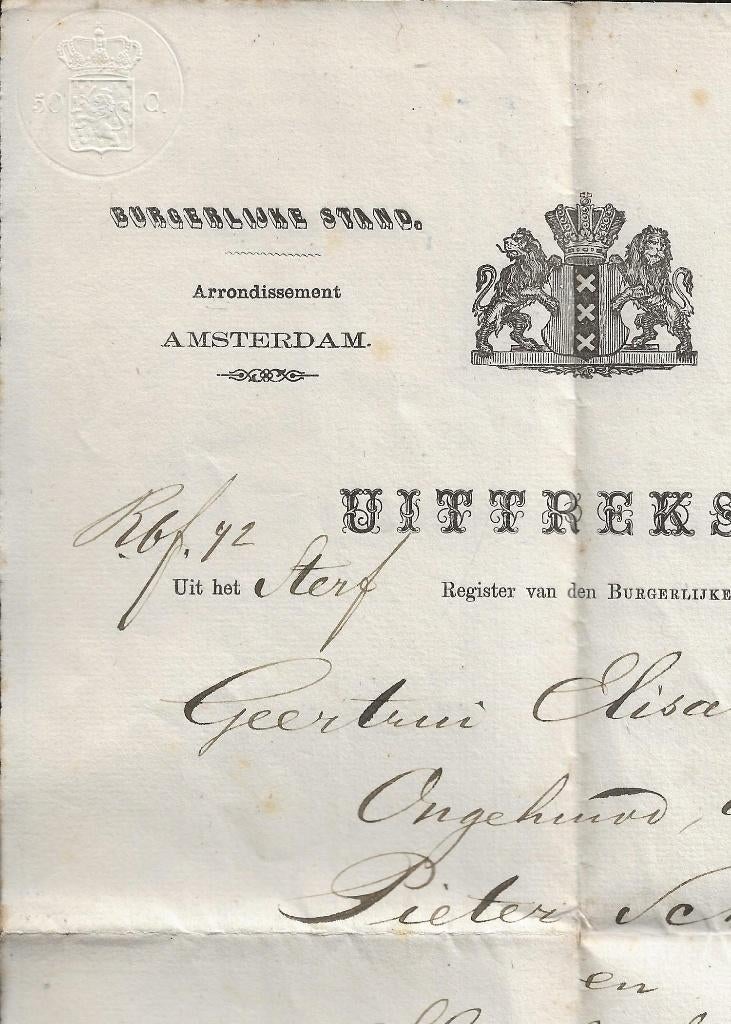 50 C.
BURGERLIJKE STAND.
Arrondissement
AMSTERDAM.
UITTREKS
Uit het Sterf Register van den BURGERLIJKE
Geertrui Elisa
Ongehuwd,
Pieter Sch
en